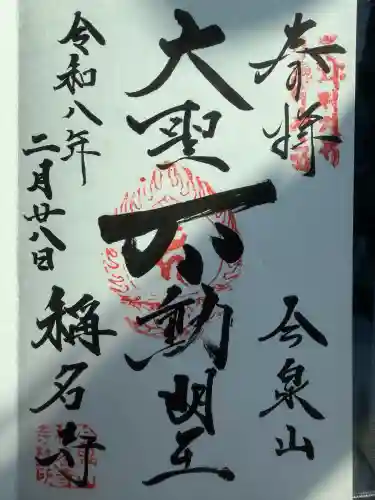 奉拝
今泉山
大聖不動明王
令和八年
二月廿八日
稱名寺